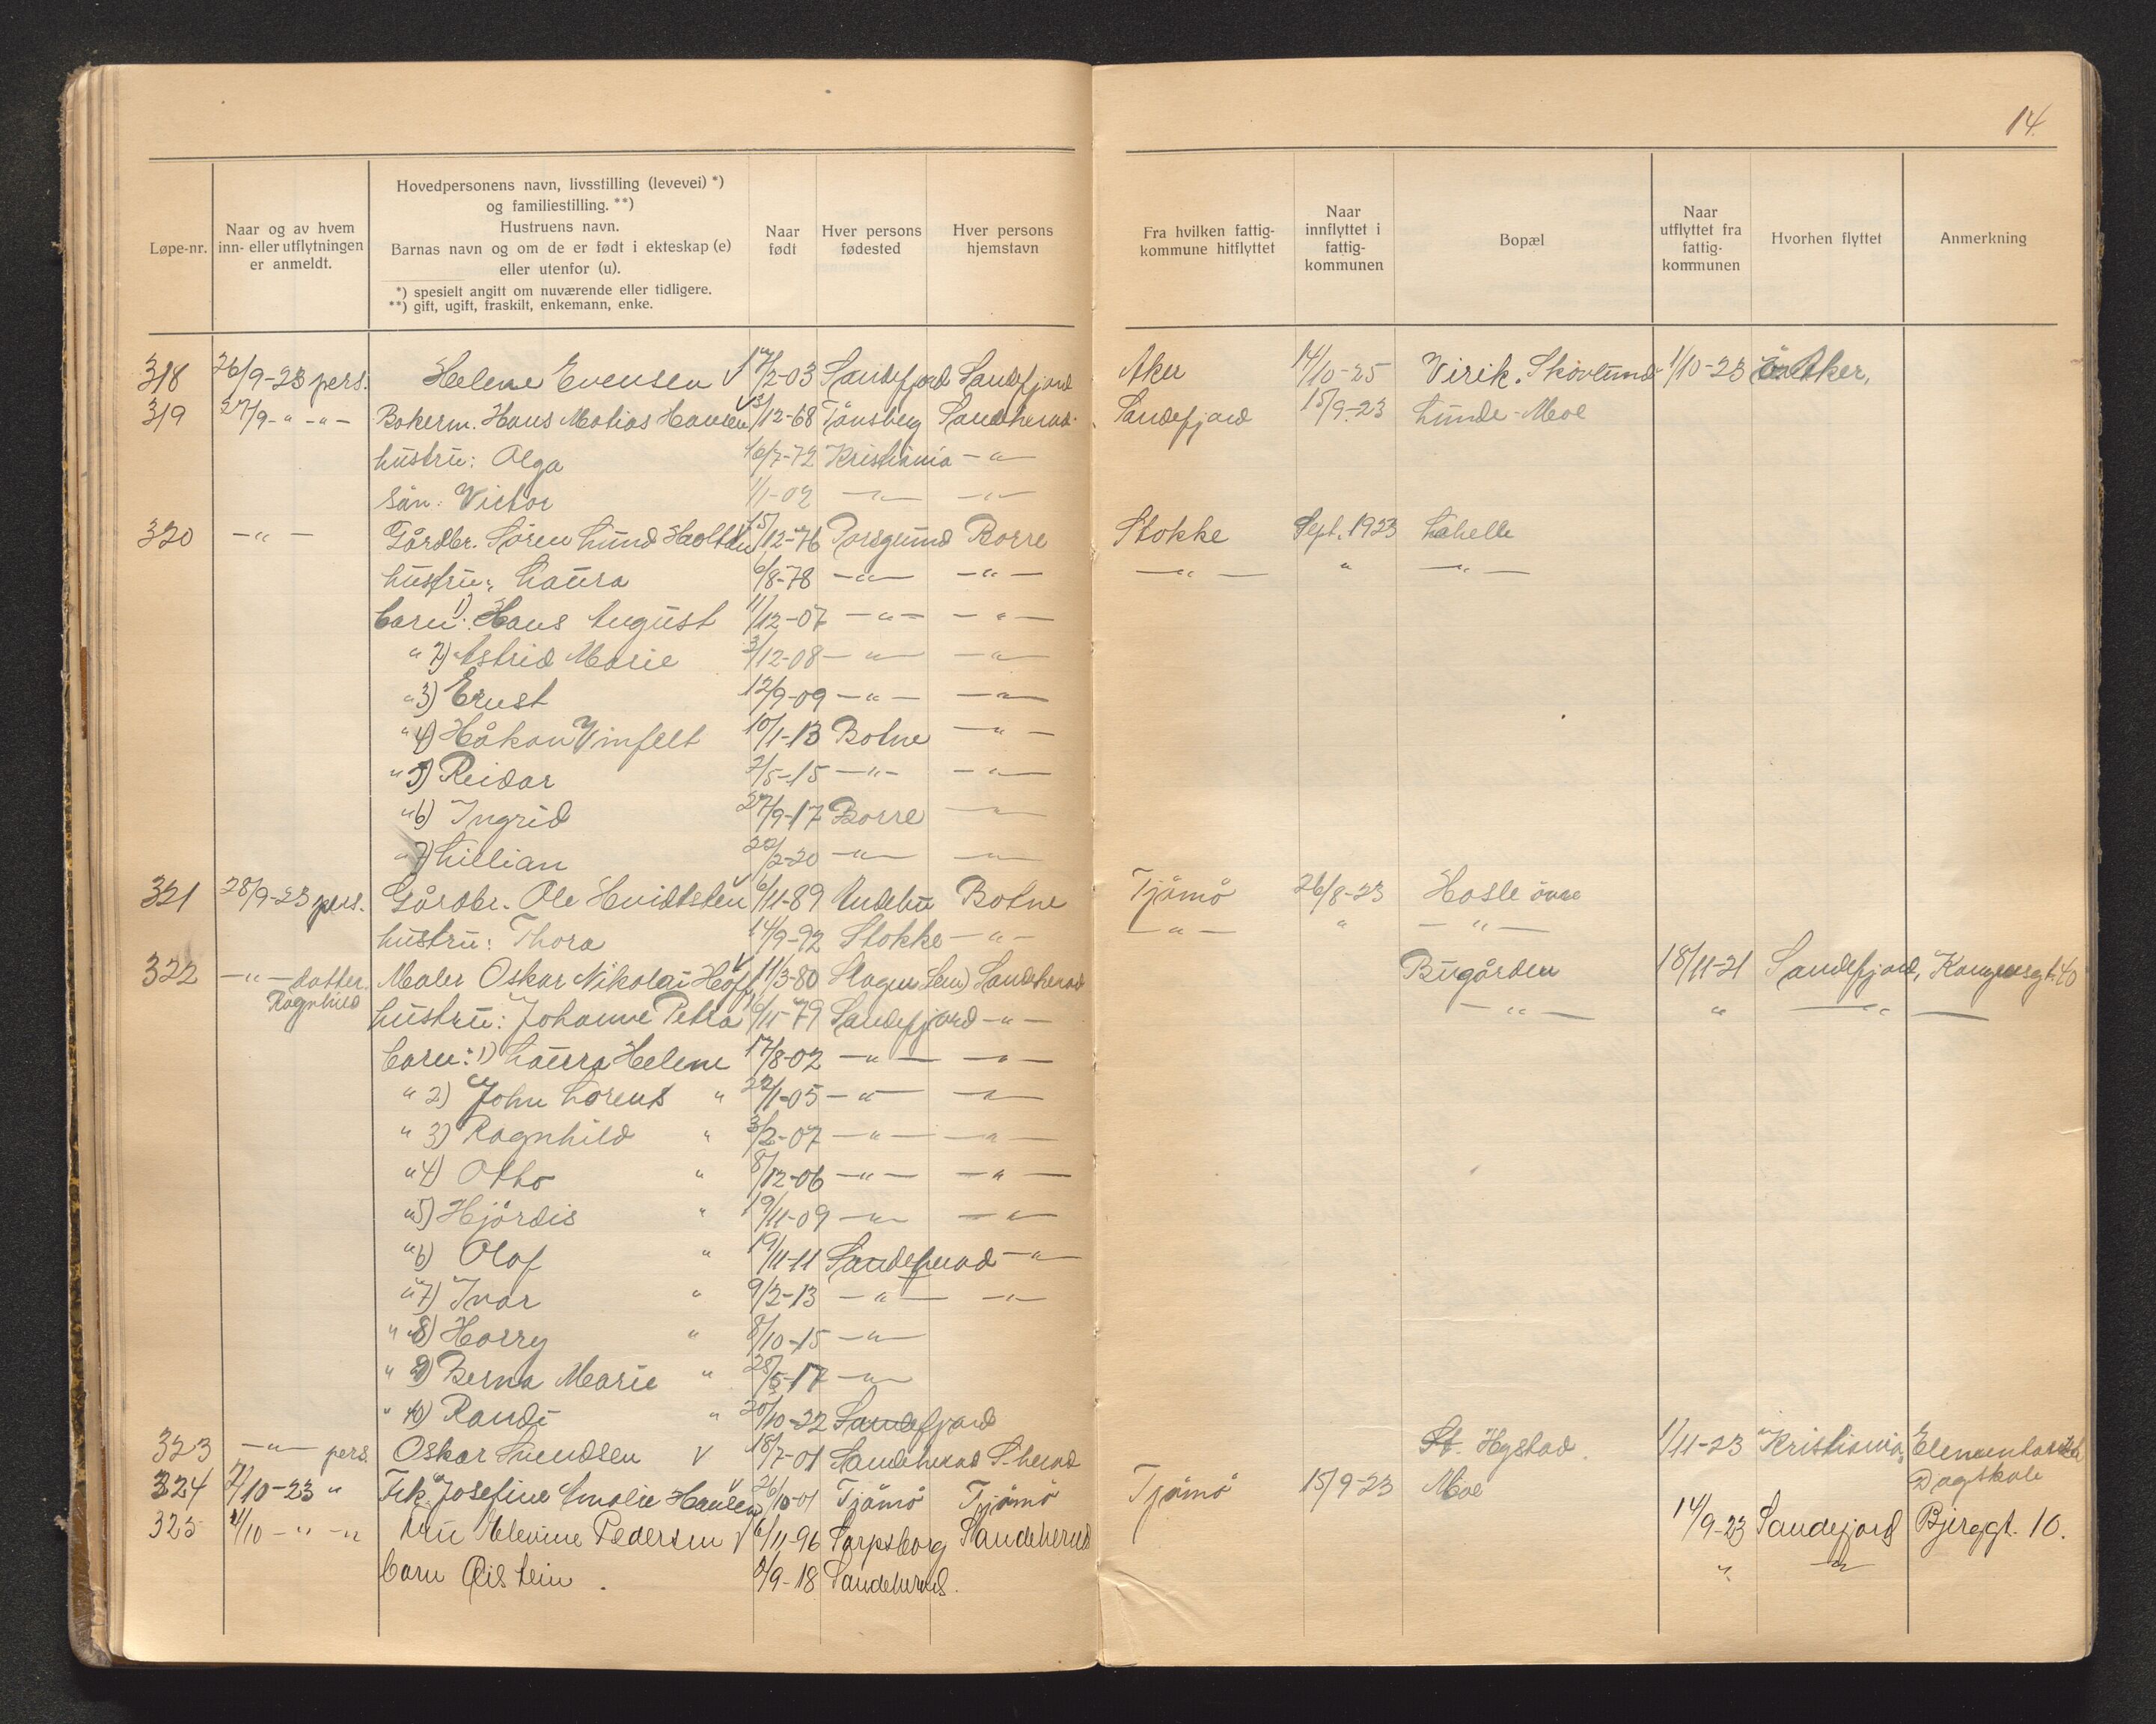 14.
Løpe-nr.
Naar og av hvem inn- eller utflytningen er anmeldt.
Hovedpersonens navn, livsstilling (levevei) *)
og familiestilling. **)
Hustruens navn.
Barnas navn og om de er født i ekteskap (e)
eller utenfor (u).
*) spesielt angitt om nuværende eller tidligere.
**) gift, ugift, fraskilt, enkemann, enke.
Naar født
Hver persons fødested
Hver persons hjemstavn
Fra hvilken fattig-kommune hitflyttet
Naar innflyttet i fattig-kommunen
Bopæl
Naar utflyttet fra fattig-kommunen
Hvorhen flyttet
Anmerkning
318 26/9-23 pers. Helene Evensen V 17/2-03 Sandefjord Sandefjord Aker 14/10-25 Virik. Skovlund 1/10-23 Aker,
319 27/9-"-"- Bokerm. Hans Matias Hansen V 3/12-68 Tønsberg Sandherad. Sandefjord 15/9-23 Lunde-Moe
hustru: Olga 16/7-72 Kristiania -"-
søn: Victor 1/1-02 -"- -"-
320 -"- Gårdbr. Søren Lund Holtan 15/12-76 Porsgrund Borre Stokke Sept. 1923 Lahelle
hustru: Laura 6/8-78 -"- -"- -"- " -"-
barn: 1) Hans August 11/12-07 -"- -"-
" 2) Astrid Marie 3/12-08 -"- -"-
" 3) Ernst 12/9-09 -"- -"-
" 4) Håkon Vinfelt 10/1-13 Botne -"-
" 5) Reidar 7/5-15 -"- -"-
" 6) Ingrid 27/9-17 Borre -"-
" 7) Lillian 20/2-20 -"- -"-
321 28/9-23 pers. Gårdbr. Ole Hvidtsten V 6/11-89 Andebu Botne Tjømø 26/8-23 Hasle øvre
hustru: Thora 14/9-92 Stokke -"- -"- " -"-
322 -"- datter Ragnhild Maler Oskar Nikolai Høff V 11/3-80 Slagen (Sem) Sandherad Bugården 18/11-21 Sandefjord, Kongensgt. 40
hustru: Johanne Petra 6/11-79 Sandefjord -"- -"- " -"-
barn: 1) Laura Helene 17/8-02 -"- -"-
" 2) John Lorents " 22/1-05 -"- -"-
" 3) Ragnhild " 3/2-07 -"- -"-
" 4) Otto " 8/12-06 -"- -"-
" 5) Hjørdis " 19/11-09 -"- -"-
" 6) Olaf " 19/11-11 Sandeherad -"-
" 7) Ivar " 9/2-13 -"- -"-
" 8) Harry " 8/10-15 -"-
" 9) Berna Marie " 28/5-17 -"-
" 10) Randi " 20/10-22 Sandefjord
323 -"- pers. Oskar Svendsen V 18/7-01 Sandeherad S.herad St. Hystad. 1/11-23 Kristiania,
Dagskole
324 2/10-23 " Frk. Josefine Amalie Hansen V 26/10-01 Tjømø Tjømø Tjømø 15/9-23 Moe
325 4/10-"-" Fru Elevine Pedersen V 6/11-96 Sarpsborg Sandeherad 14/9-23 Sandefjord Bjerggt. 10.
barn Øistein. 2/9-18 Sandeherad. " -"-